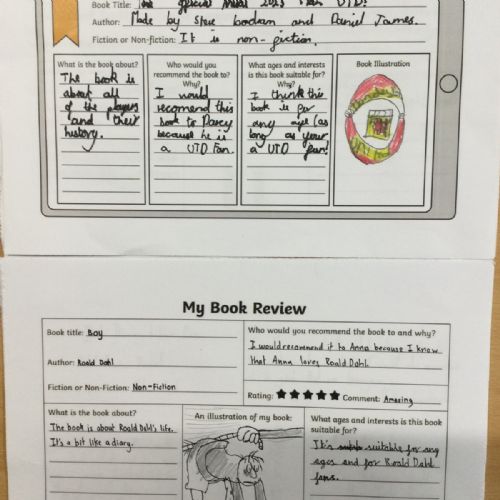 Book Title: The Official Annual 2023 Man UTD!
Author: Made by Steve bodman and Daniel James.
Fiction or Non-fiction: It is non-fiction.
What is the book about?
The book is
about all
of the players
and their
history.
Who would you
recommend the book to?
Why?
I would
recomend this
book to Darcy
because he is
a UTD Fan.
What ages and interests
is this book suitable for?
Why?
I think this
book is for
any age (as
long as your
a UTD fan!
Book Illustration
My Book Review
Book title: Boy
Author: Roald Dahl
Fiction or Non-Fiction: Non-Fiction
Who would you recommend the book to and why?
I would recommend it to Anna because I know
that Anna loves Roald Dahl.
Rating: ★★★★★ Comment: Amazing
What is the book about?
The book is about Roald Dahl's life.
It's a bit like a diary.
An illustration of my book:
What ages and interests is this book
suitable for?
It's suitable for any
ages and for Roald Dahl
fans.